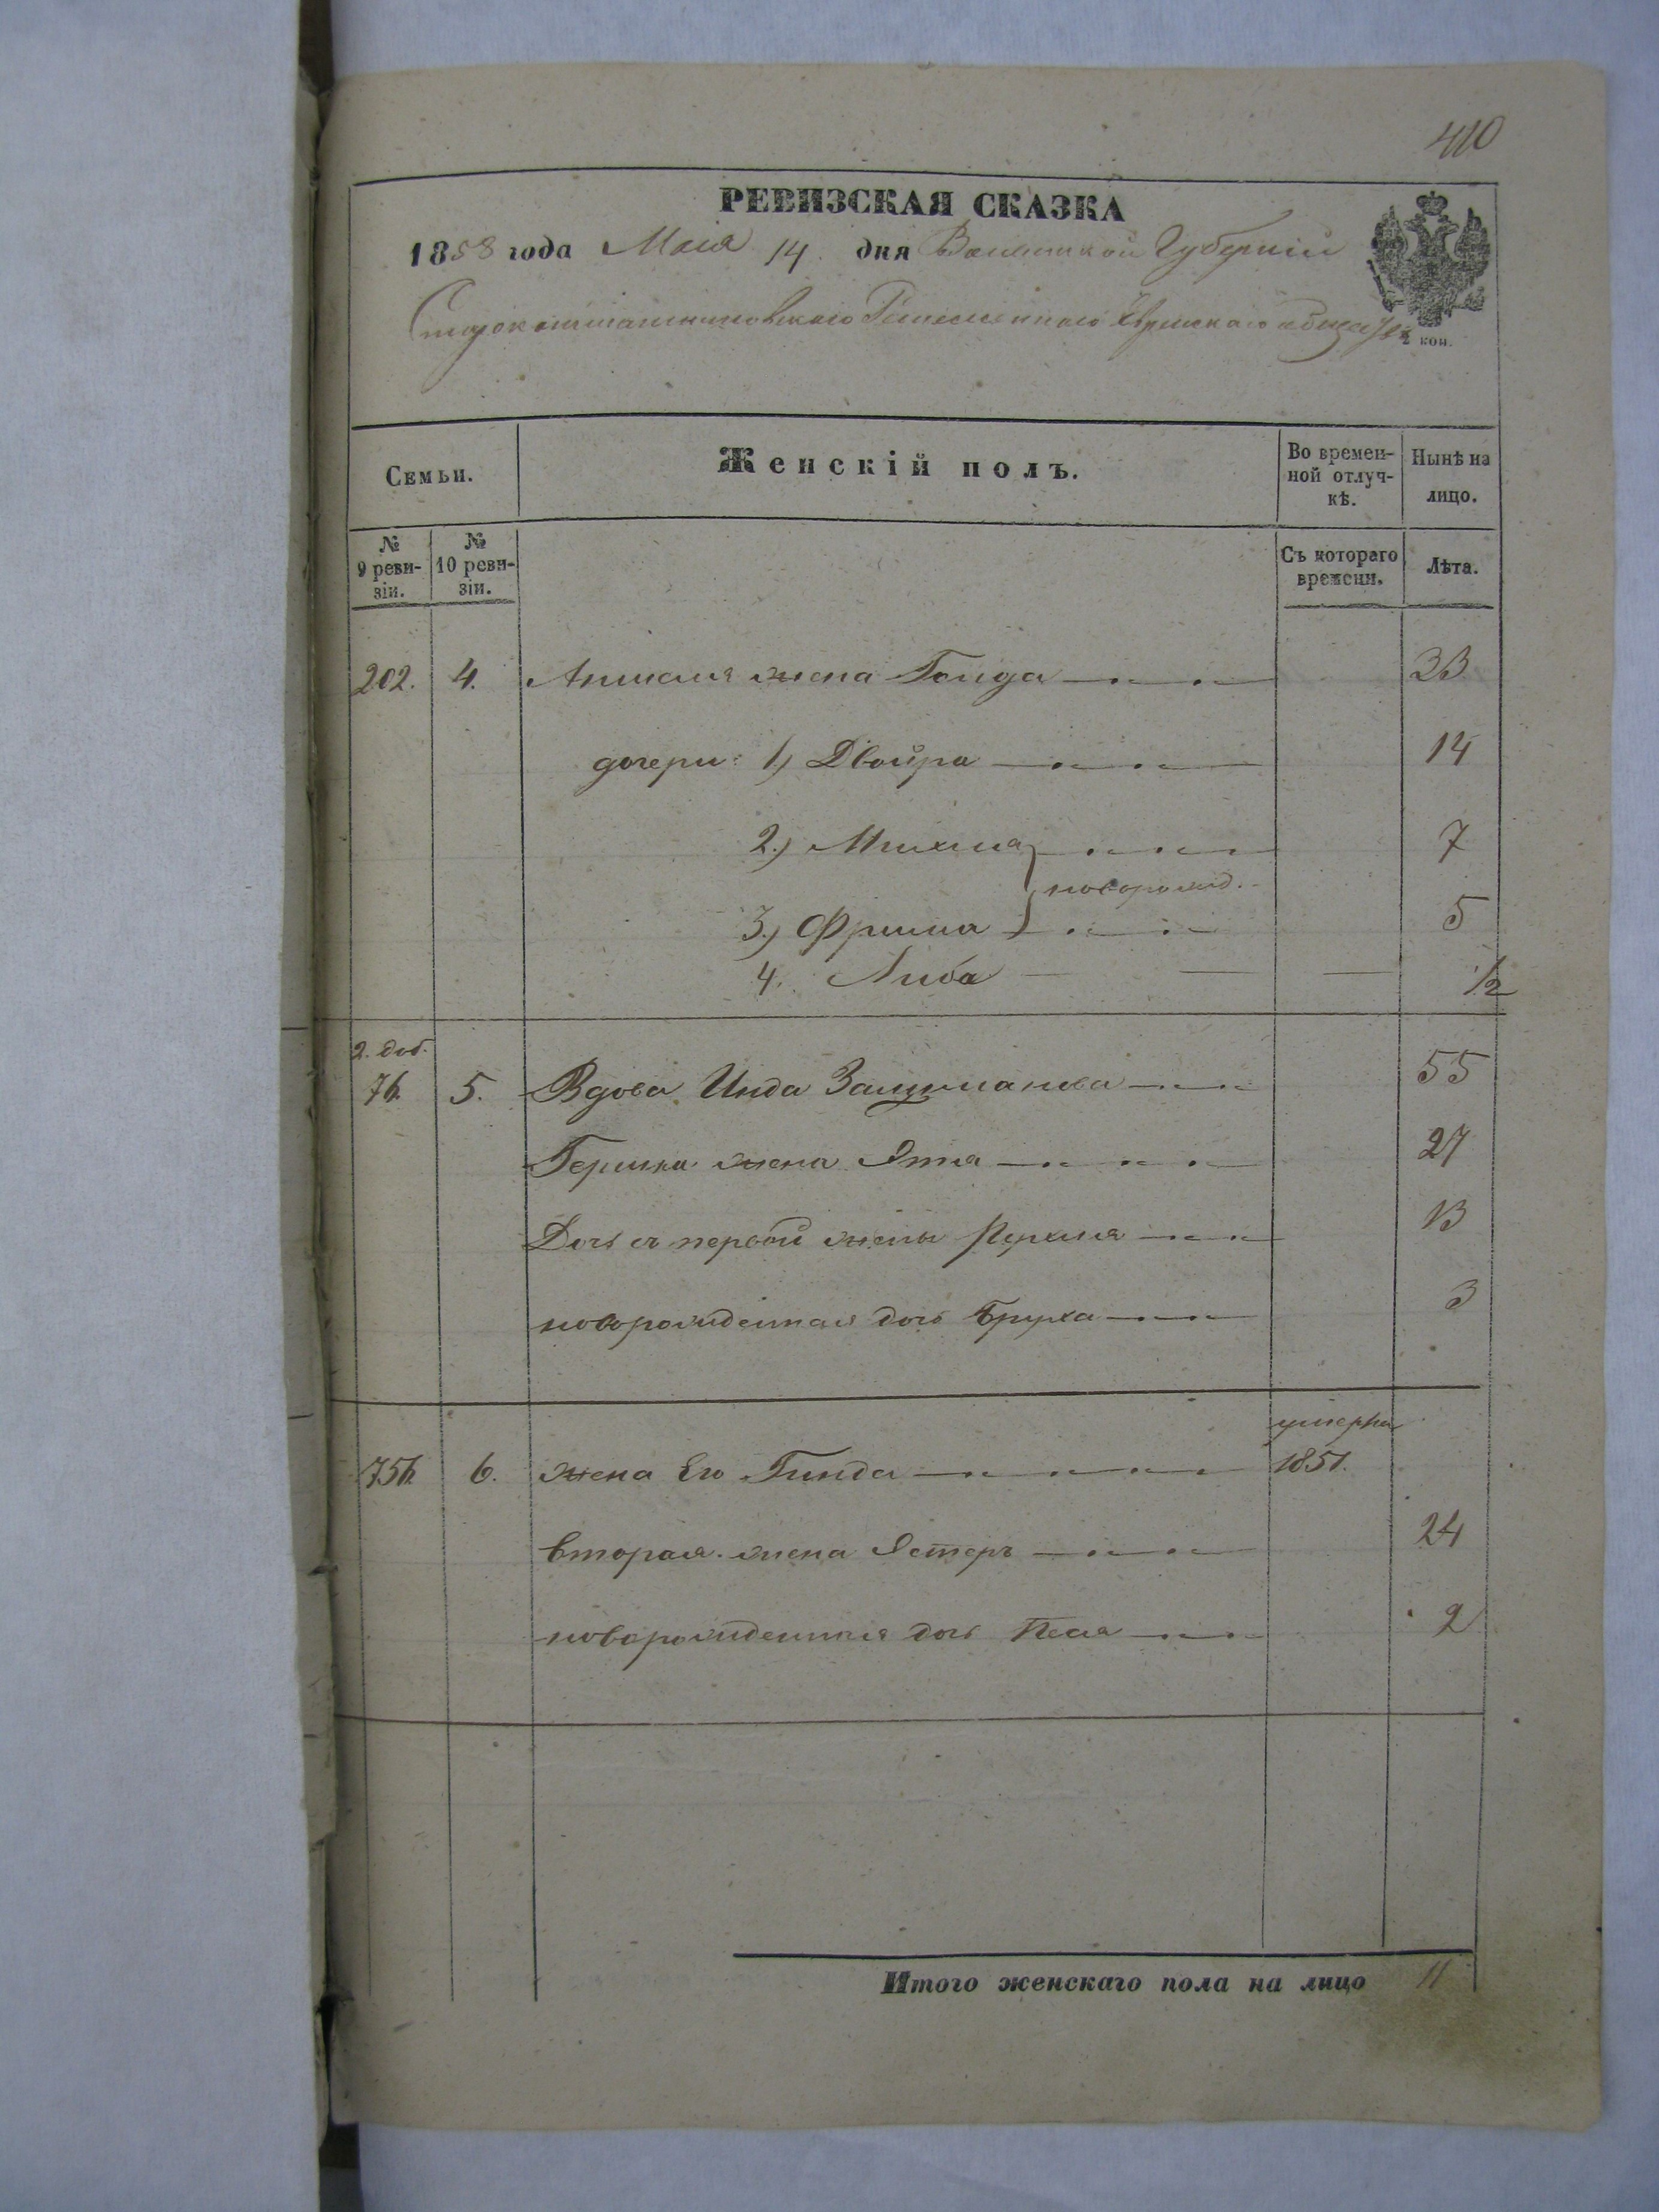 410
РЕВИЗСКАЯ СКАЗКА
1858 года Маія 14 дня Волынской Губерніи
Староконстантиновскаго Ремесленнаго Еврейскаго общества
2 коп.
Семьи.
Женскій полъ.
Во временной отлучкѣ.
Нынѣ на лицо.
№ 9 ревизіи.
№ 10 ревизіи.
Съ котораго времени.
Лѣта.
202. 4. Аншеля жена Голда 33
дочери: 1) Двойра 14
2) 7
новорожд.
3) Фрима 5
4. Либа 1/2
2. доб.
76. 5. Вдова Инда 55
Гершка жена Этя 27
Дочь съ первой жены 13
новорожденная дочь Бруха 3
умерла
756 6. жена Его Гинда 1851.
вторая жена Эстеръ 24
новорожденная дочь Песя 2
Итого женскаго пола на лицо 11